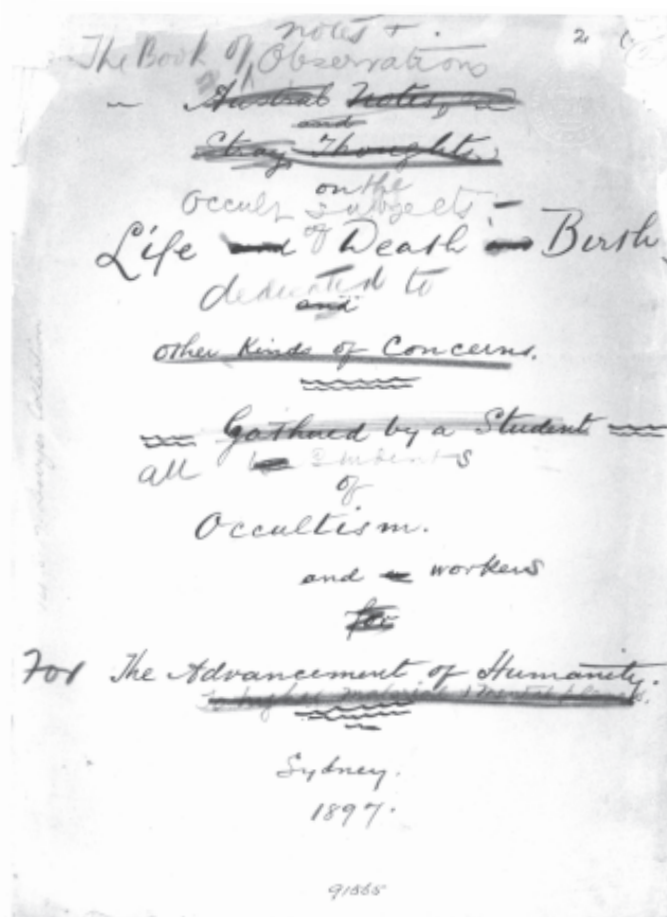 notes + .
The Book of Observations
Austral Notes,
and
Stray Thoughts
on the
Occult subjects -
Life and of Death Birth
dedicated to
and
other Kinds of Concerns.
Gathered by a Student
all students
of
Occultism.
and workers
for
For The Advancement of Humanity.
Sydney.
1897.